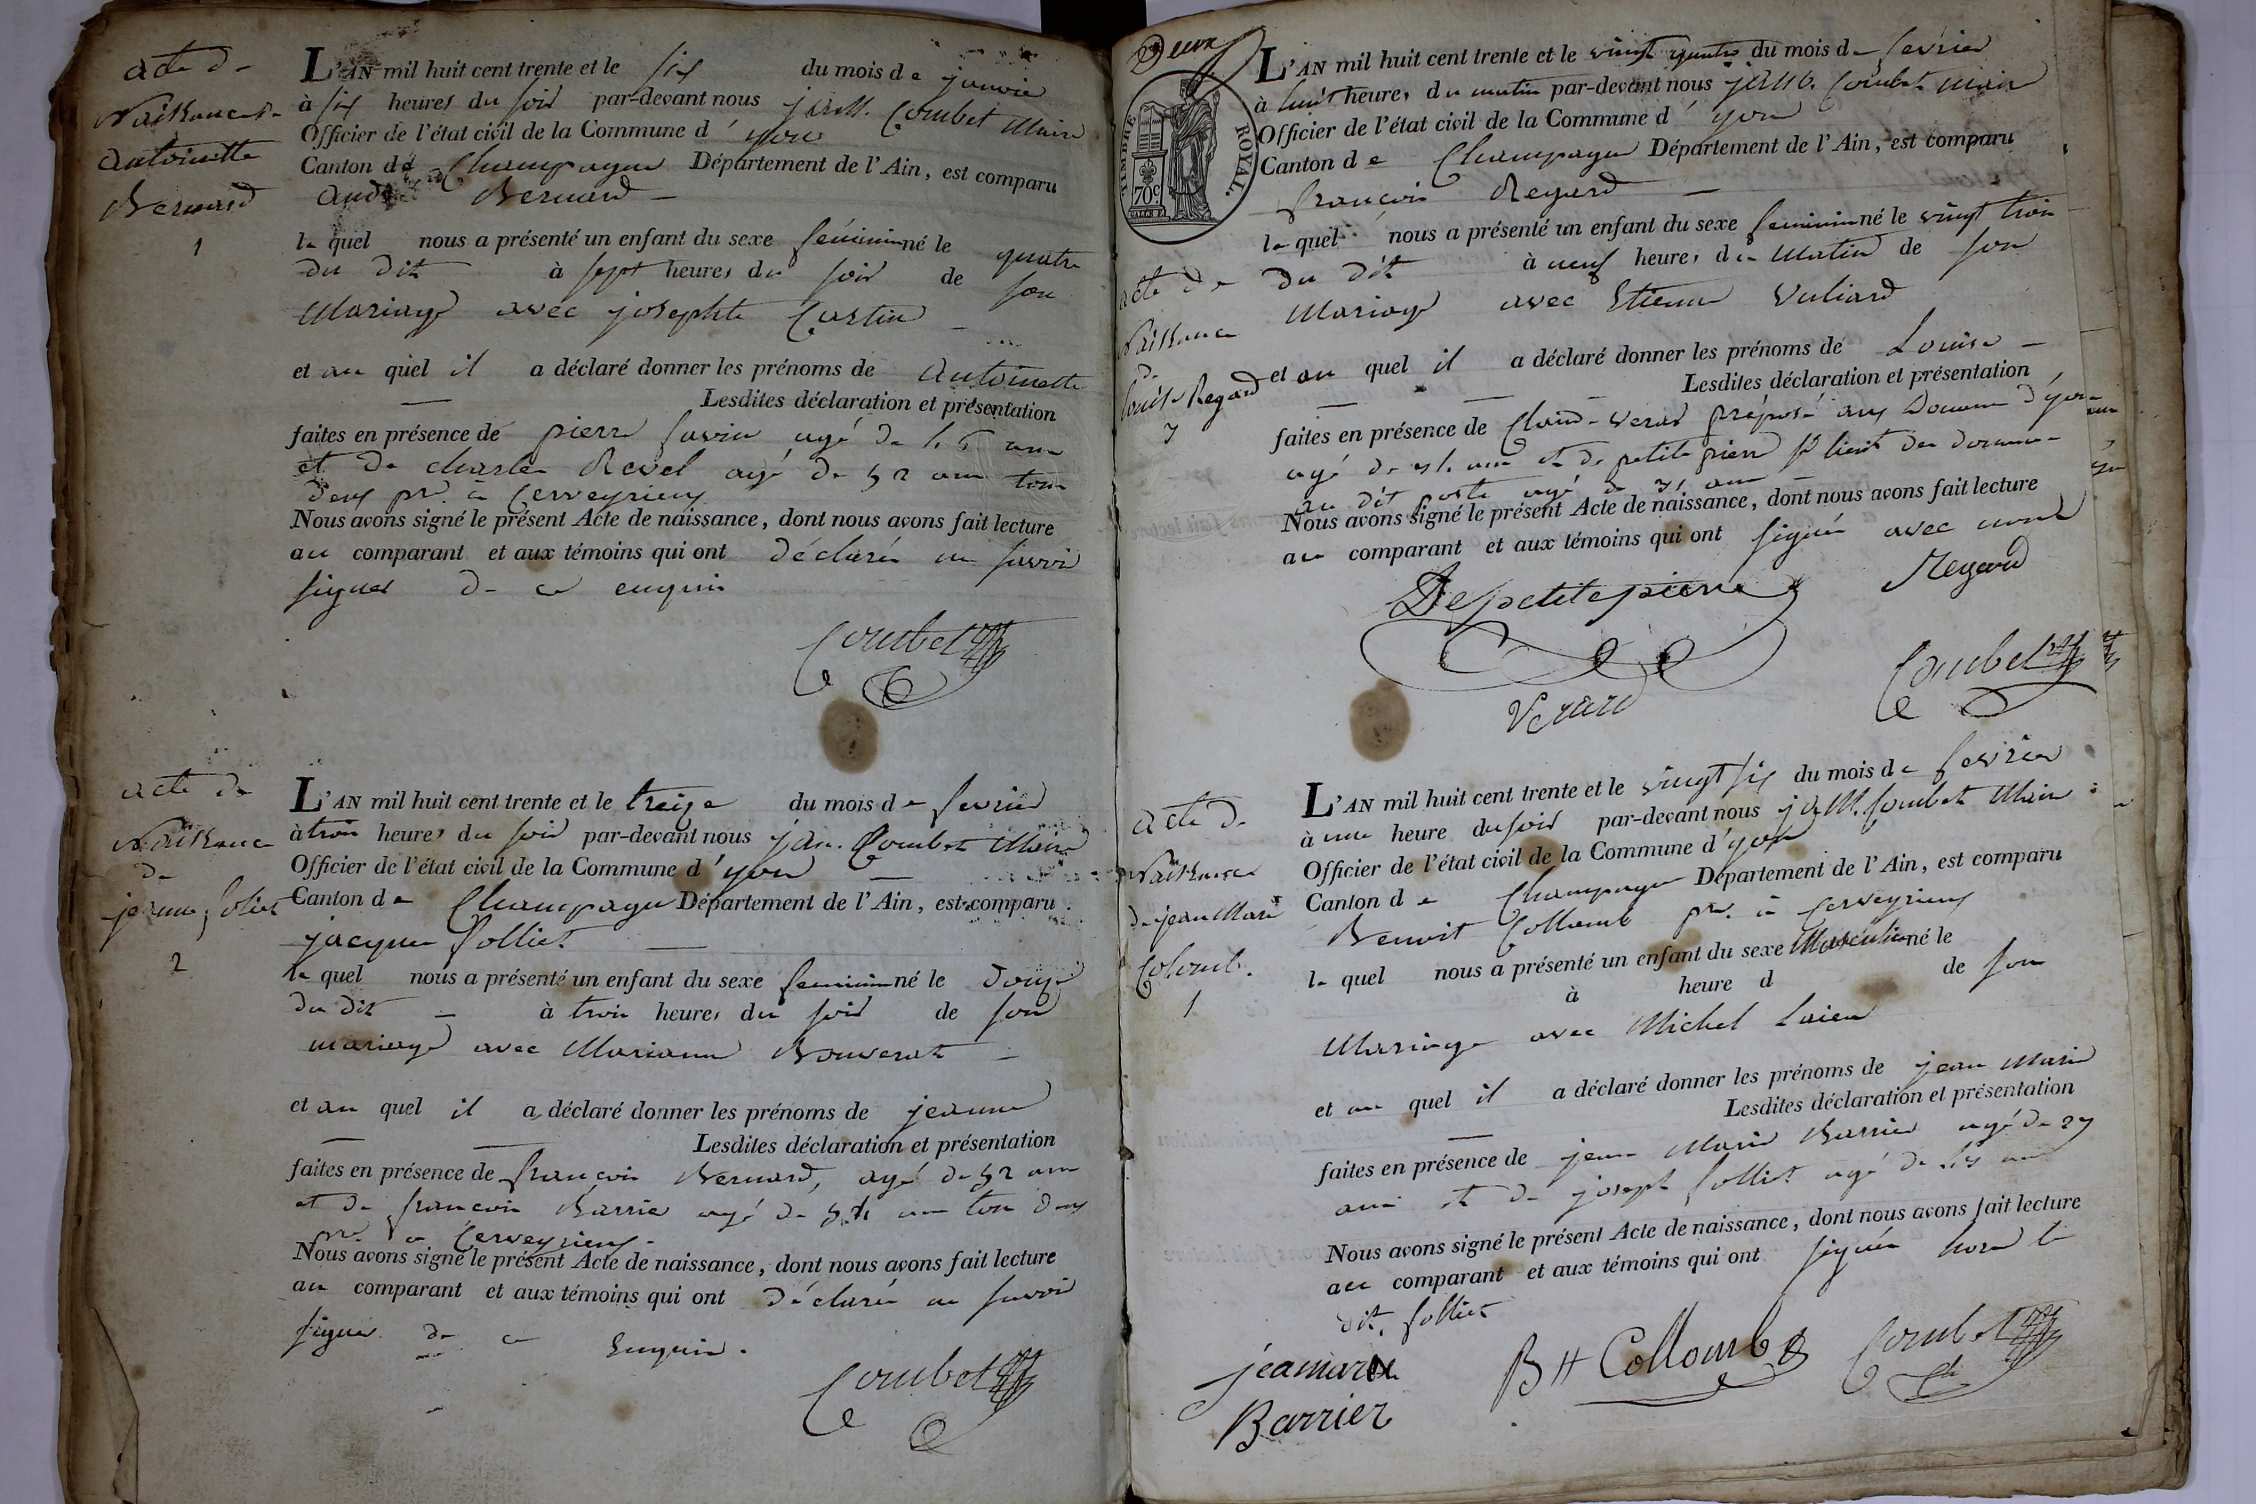 acte de
Naissance de
antoinette
Bernard
1
L'AN mil huit cent trente et le six du mois de janvier
à six heures du soir par-devant nous Combet Maire
Officier de l'état civil de la Commune d' yon
Canton de Champagne Département de l'Ain, est comparu
Bernard
le quel nous a présenté un enfant du sexe féminin né le quatre
du dit à sept heures du soir de son
Mariage avec josephte Castin
et au quel il a déclaré donner les prénoms de antoinette
Lesdites déclaration et présentation
faites en présence de pierre savin agé de ans
et de charles Revel agé de 52 ans tous
deux pre. à Cerveyrieux
Nous avons signé le présent Acte de naissance, dont nous avons fait lecture
au comparant et aux témoins qui ont déclarés ne savoir
signer de ce enquis
Combet
acte de
Naissance
de
jeanne folliet
2
L'AN mil huit cent trente et le treize du mois de fevrier
à trois heures du soir par-devant nous Combet Maire
Officier de l'état civil de la Commune d' yon
Canton de Champagne Département de l'Ain, est comparu
jacques folliet
le quel nous a présenté un enfant du sexe feminin né le douze
du dit à trois heures du soir de son
mariage avec Mariann Bouverat
et au quel il a déclaré donner les prénoms de jeanne
Lesdites déclaration et présentation
faites en présence de françois Bernard, agé de 52 ans
et de françois Barrier agé de ans tous deux
pre. à Cerveyrieux
Nous avons signé le présent Acte de naissance, dont nous avons fait lecture
au comparant et aux témoins qui ont déclarés ne savoir
signer de ce Enquis.
Combet
Deux
TIMBRE ROYAL.
70 c.
L'AN mil huit cent trente et le vingt quatre du mois de fevrier
à huit heures du matin par-devant nous Combet Maire
Officier de l'état civil de la Commune d' yon
Canton de Champagne Département de l'Ain, est comparu
françois Regard
le quel nous a présenté un enfant du sexe feminin né le vingt trois
du dit à neuf heures du Matin de son
Mariage avec Etienne Vuliard
acte de
Naissance
de
louise Regard
3
et au quel il a déclaré donner les prénoms de Louise
Lesdites déclaration et présentation
faites en présence de Claude Verard préposé aux Douanes d'yon
agé de ans et de petite pierre lieut des douanes
au dit poste agé de 31 ans
Nous avons signé le présent Acte de naissance, dont nous avons fait lecture
au comparant et aux témoins qui ont signés avec nous
Depetitepierre Regard
Verard Combet
acte de
Naissance
de jean Marie
Colomb.
1
L'AN mil huit cent trente et le vingt six du mois de fevrier
à une heure du soir par-devant nous Combet Maire
Officier de l'état civil de la Commune d' yon
Canton de Champagne Département de l'Ain, est comparu
Benoit Collomb pre. à Cerveyrieux
le quel nous a présenté un enfant du sexe Masculin né le
à heure d de son
Mariage avec Michel Laieu
et au quel il a déclaré donner les prénoms de jean Marie
Lesdites déclaration et présentation
faites en présence de jean Marie Barrier agé de 27
ans et de joseph folliet agé de ans
Nous avons signé le présent Acte de naissance, dont nous avons fait lecture
au comparant et aux témoins qui ont signés hors le
dit folliet
jeamarie
Barrier
Bt Collomb
Combet